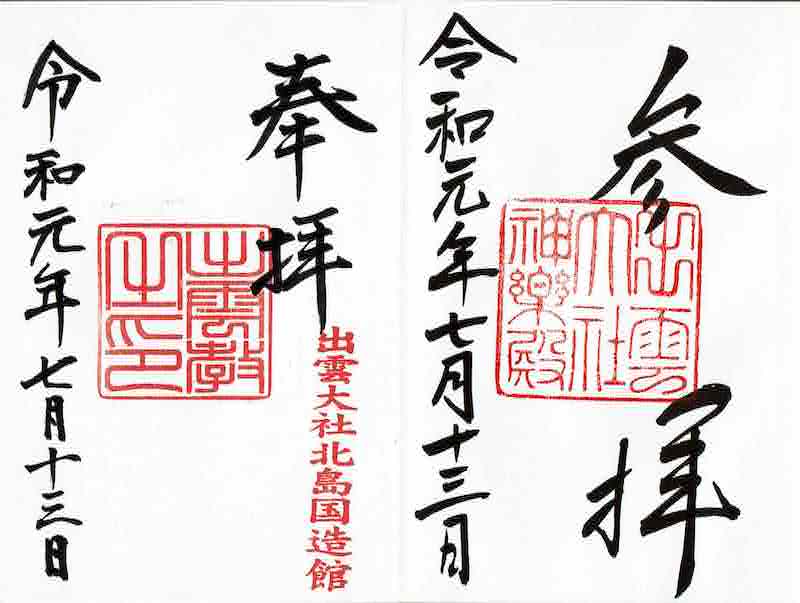 参拝
出雲
大社
神樂殿
令和元年七月十三日
奉拝
出雲大社北島国造館
出雲教
之印
令和元年七月十三日